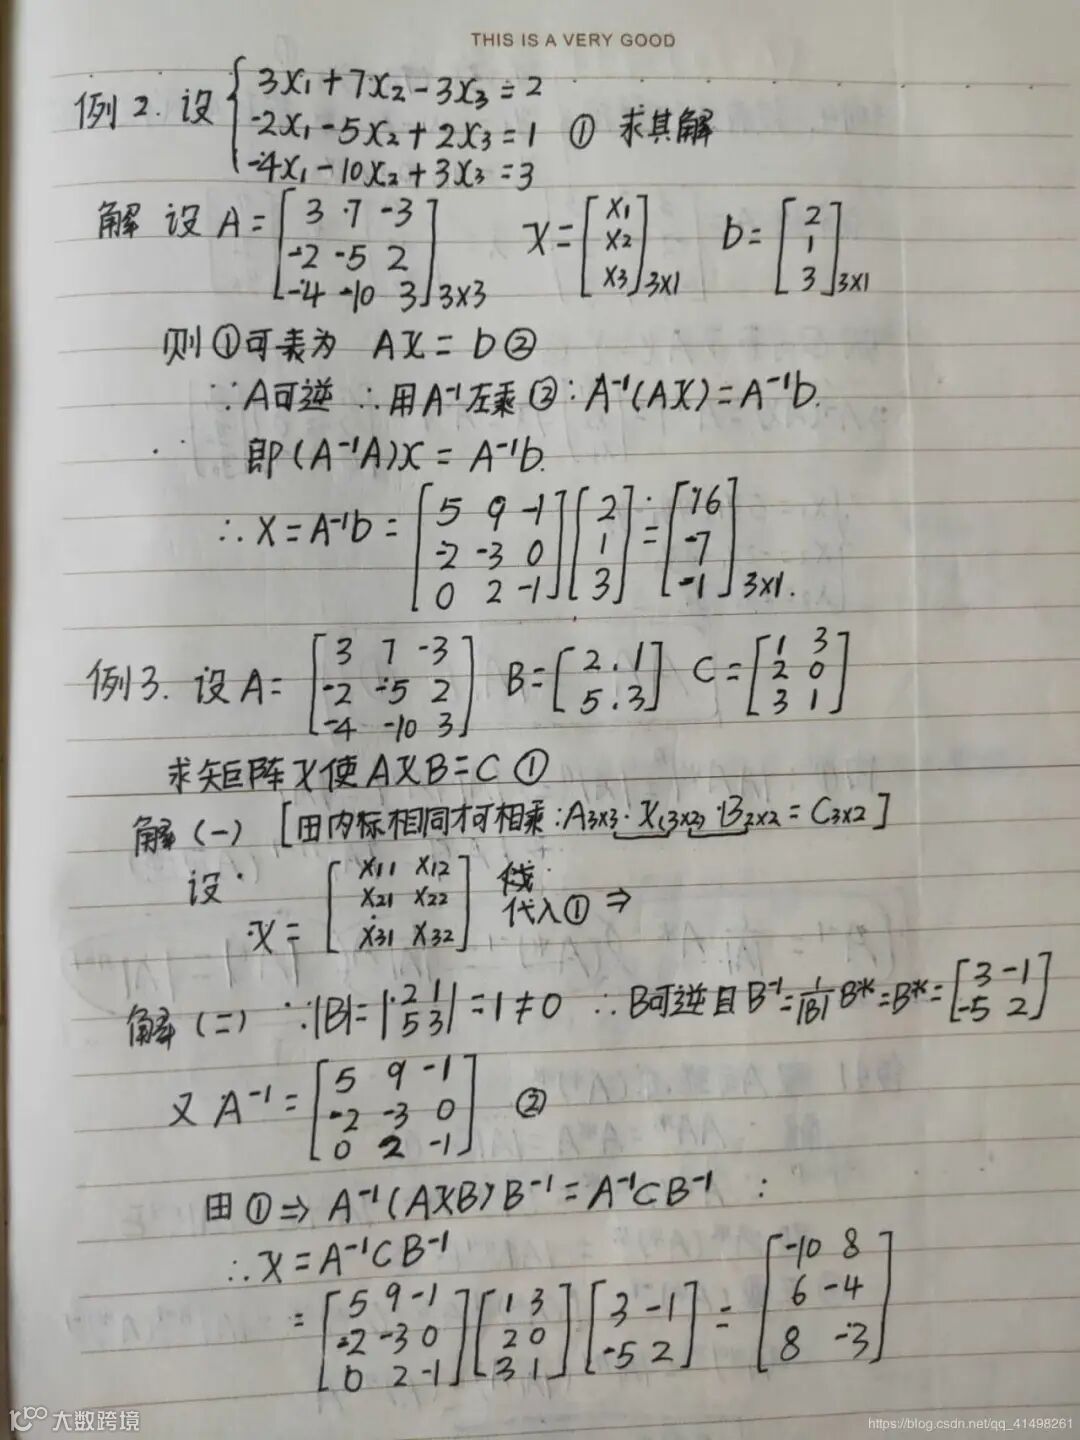 THIS IS A VERY GOOD
例2. 设 { 3x₁+7x₂-3x₃=2
-2x₁-5x₂+2x₃=1 ① 求其解
-4x₁-10x₂+3x₃=3
解 设 A=[3 7 -3; -2 -5 2; -4 -10 3]3x3 X=[x₁; x₂; x₃]3x1 b=[2; 1; 3]3x1
则①可表为 AX=b②
∵A可逆 ∴用A⁻¹左乘②:A⁻¹(AX)=A⁻¹b.
即(A⁻¹A)X=A⁻¹b.
∴X=A⁻¹b=[5 9 -1; -2 -3 0; 0 2 -1][2; 1; 3]=[16; -7; -1]3x1.
例3. 设A=[3 7 -3; -2 -5 2; -4 -10 3] B=[2 1; 5 3] C=[1 3; 2 0; 3 1]
求矩阵X使AXB=C①
解(一) [由内标相同才可相乘:A3x3·X(3x2)·B2x2=C3x2]
设 X=[x₁₁ x₁₂; x₂₁ x₂₂; x₃₁ x₃₂] 代入①⇒
解(二) ∵|B|=|2 1; 5 3|=1≠0 ∴B可逆且B⁻¹=1/|B| B*=B*=[3 -1; -5 2]
又A⁻¹=[5 9 -1; -2 -3 0; 0 2 -1] ②
由①⇒A⁻¹(AXB)B⁻¹=A⁻¹CB⁻¹
∴X=A⁻¹CB⁻¹
=[5 9 -1; -2 -3 0; 0 2 -1][1 3; 2 0; 3 1][3 -1; -5 2]=[-10 8; 6 -4; 8 -3]
大数跨境
https://blog.csdn.net/qq_41498261